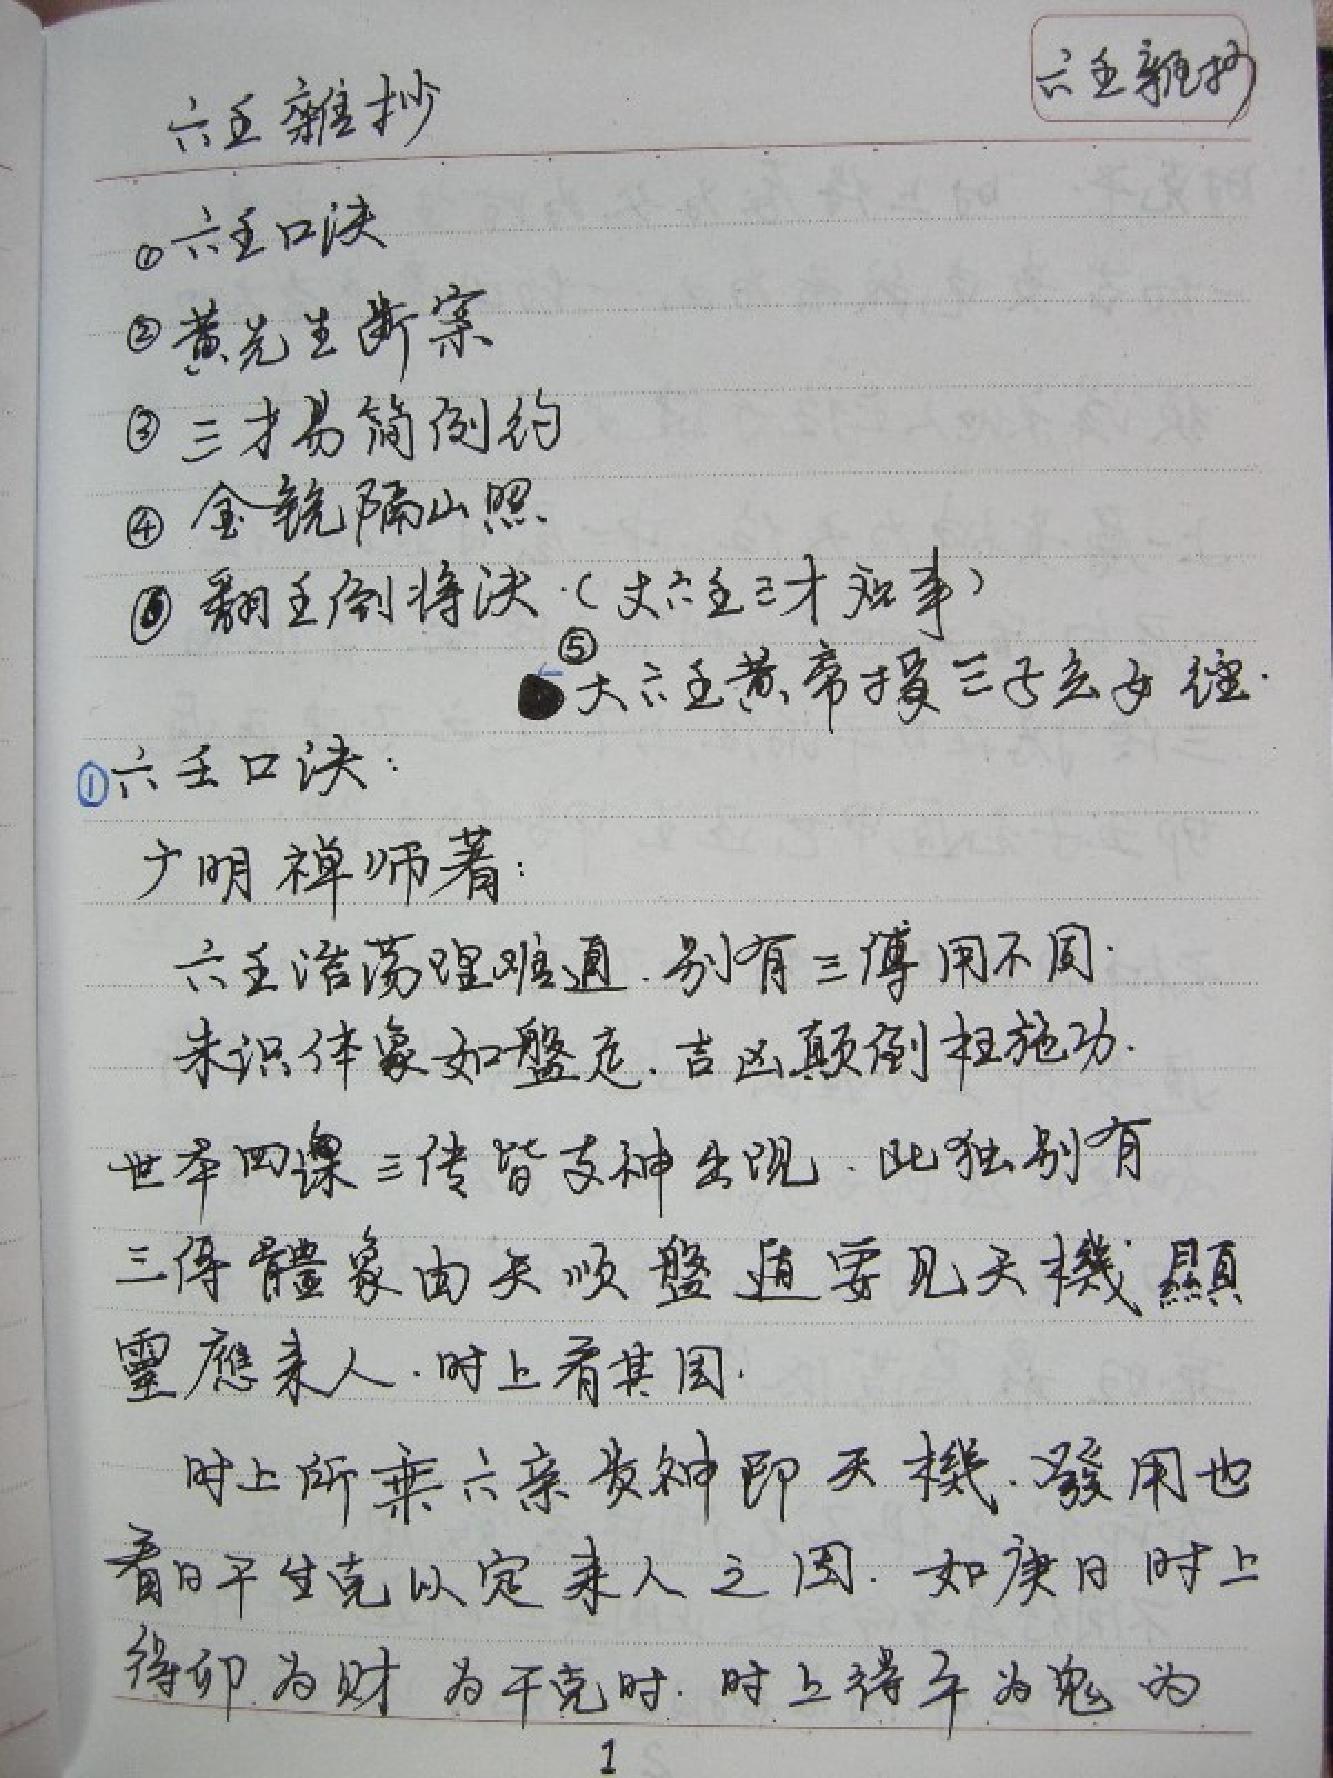 六壬雜抄
六壬雜抄
①六壬口決
②黄先生断案
③三才易简例约
④金镜隔山照
⑥翻壬倒将決（大六壬三才知事）
⑤大六壬黄帝授三子玄女经.
①六壬口決：
广明禅师著：
六壬浩荡理难通.别有三傳用不同.
未识体象如盤走.吉凶颠倒枉施功.
世本四课三传皆支神出现.此独别有
三傳體象由天顺盤遁要见天機顯
靈應来人.时上看其因.
时上所乘六亲贵神即天機.發用也
看日干生克以定来人之因.如庚日时上
得卯为财为干克时.时上得午为鬼为
1